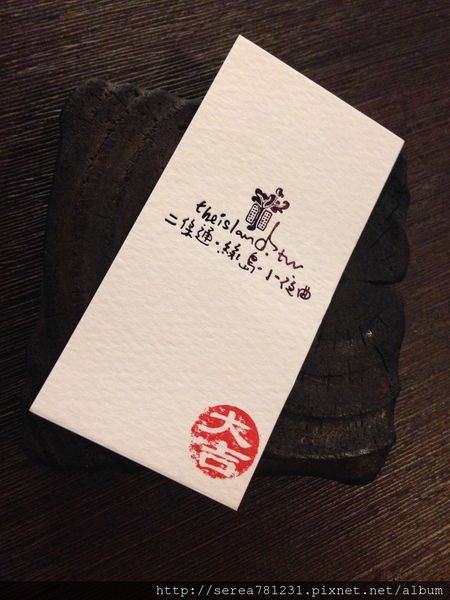 theisland.tw
二條通.綠島小夜曲
大吉
http://serea781231.pixnet.net/album